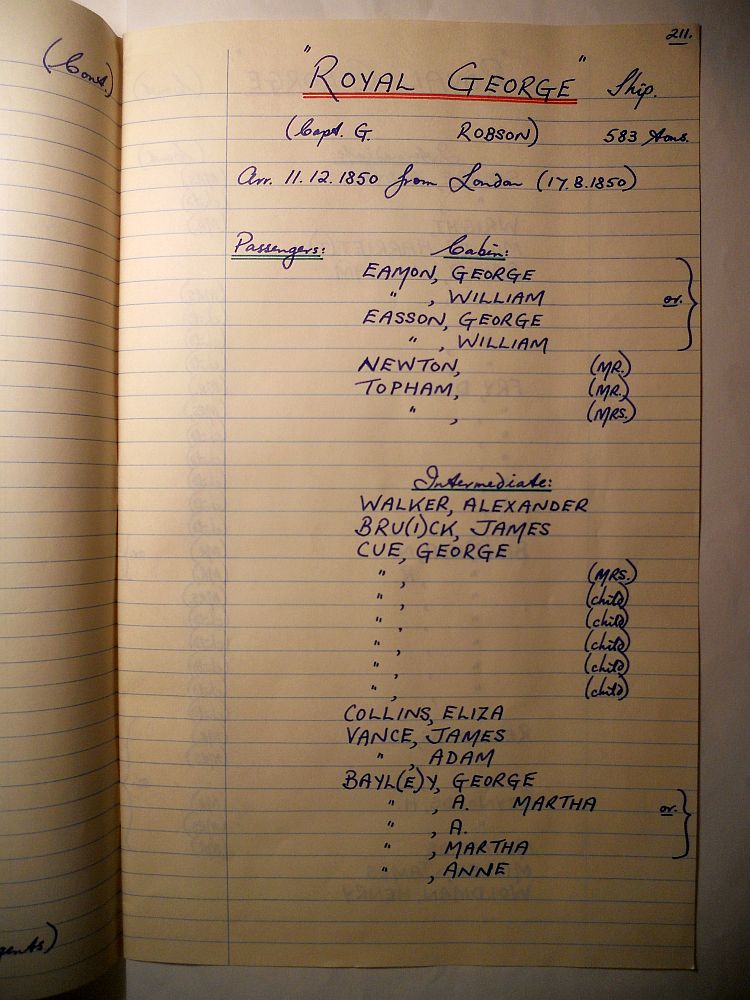 (Cont.)
211.
"ROYAL GEORGE" Ship.
(Capt. G. ROBSON) 583 tons.
Arr. 11.12.1850 from London (17.8.1850)
Passengers: Cabin:
EAMON, GEORGE
" , WILLIAM or.
EASSON, GEORGE
" , WILLIAM
NEWTON, (MR.)
TOPHAM, (MR.)
" , (MRS.)
Intermediate:
WALKER, ALEXANDER
BRU(I)CK, JAMES
CUE, GEORGE
" , (MRS.)
" , (child)
" , (child)
" , (child)
" , (child)
" , (child)
COLLINS, ELIZA
VANCE, JAMES
" , ADAM
BAYL(E)Y, GEORGE
" , A. MARTHA or.
" , A.
" , MARTHA
" , ANNE